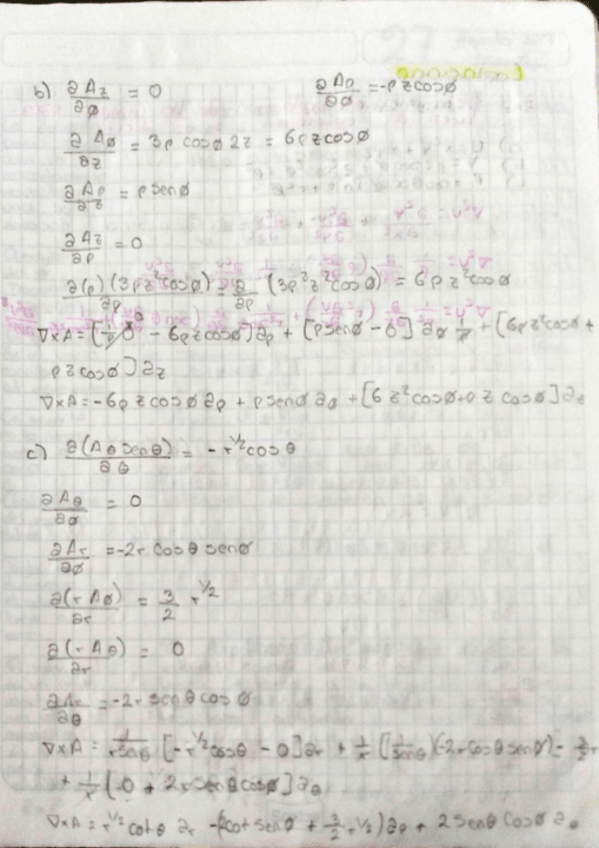 b) ∂Az/∂ø = 0    ∂Aρ/∂ø = -ρ z cosø
∂Aø/∂z = 3ρ cosø 2z = 6ρz cosø
∂Aρ/∂z = ρ senø
∂Az/∂ρ = 0
∂(ρ)(3ρz²cosø)/∂ρ = ∂/∂ρ (3ρ²z²cosø) = 6ρz²cosø
∇×A = [1/ρ 0 - 6ρz cosø]∂ρ + [ρsenø - 0]∂ø 1/ρ + [6ρz²cosø +
ρz cosø]∂z
∇×A = -6ρ z cosø ∂ρ + ρ senø ∂ø + [6 z²cosø + ρ z cosø]∂z
c) ∂(Aø senθ)/∂θ = -r^1/2 cosθ
∂Aθ/∂ø = 0
∂Ar/∂ø = -2r cosθ senø
∂(r Aø)/∂r = 3/2 r^1/2
∂(r Aθ)/∂r = 0
∂Ar/∂θ = -2r senθ cosø
∇×A = 1/rsenθ [-r^1/2 cosθ - 0]∂r + 1/r [(1/senθ)(-2r cosθ senø) - 3/2 r
+ 1/r [0 + 2r senθ cosø]∂ø
∇×A = r^1/2 cotθ ∂r - (2cot senø + 3/2 r^1/2)∂θ + 2 senθ cosø ∂ø